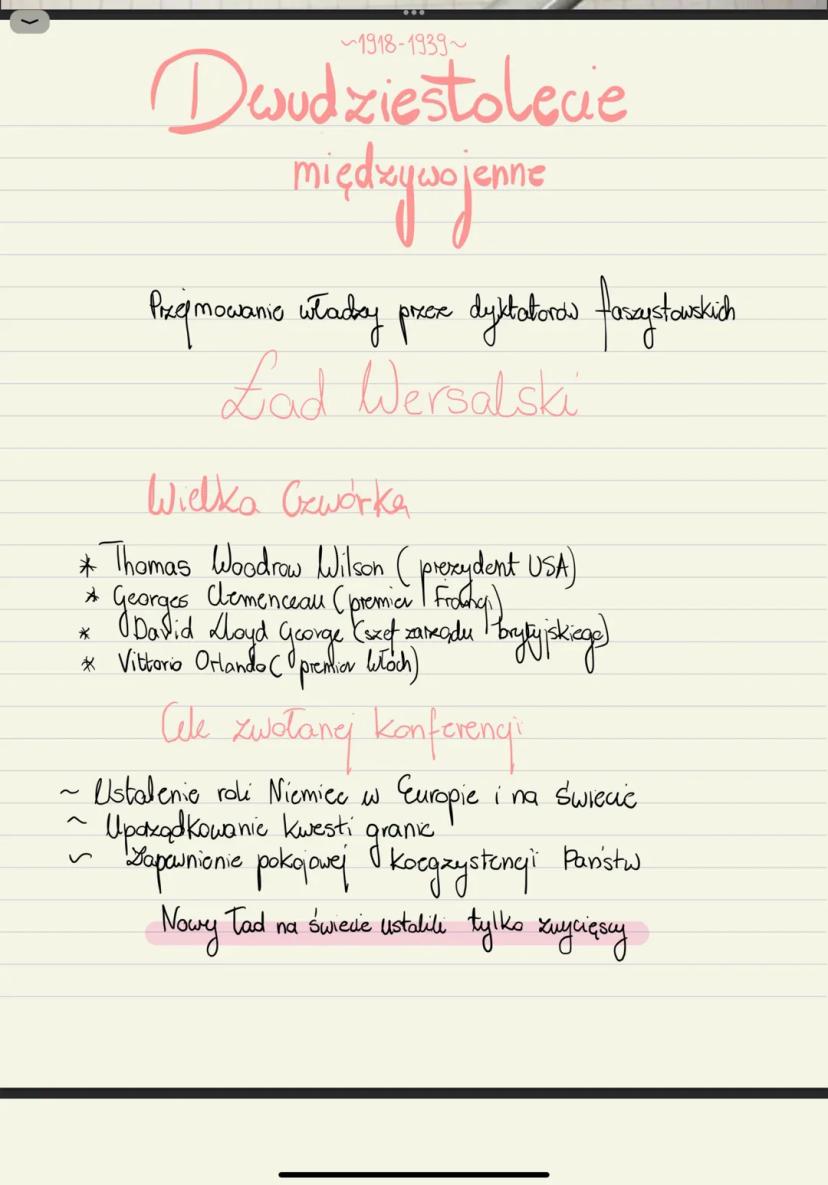 ~1918-1939~
Dwudziestolecie
międzywojenne
Przejmowanie władzy przez dyktatorów faszystowskich
Ład Wersalski
Wielka Czwórka
* Thomas Woodrow Wilson (prezydent USA)
* Georges Clemenceau (premier Francji)
* David Lloyd George (szef zarządu brytyjskiego)
* Vittorio Orlando (premier Włoch)
Cele zwołanej konferencji
~ Ustalenie roli Niemiec w Europie i na świecie
~ Uporządkowanie kwesti granic
~ Zapewnienie pokojowej koegzystencji Państw
Nowy ład na świecie ustalili tylko zwycięscy